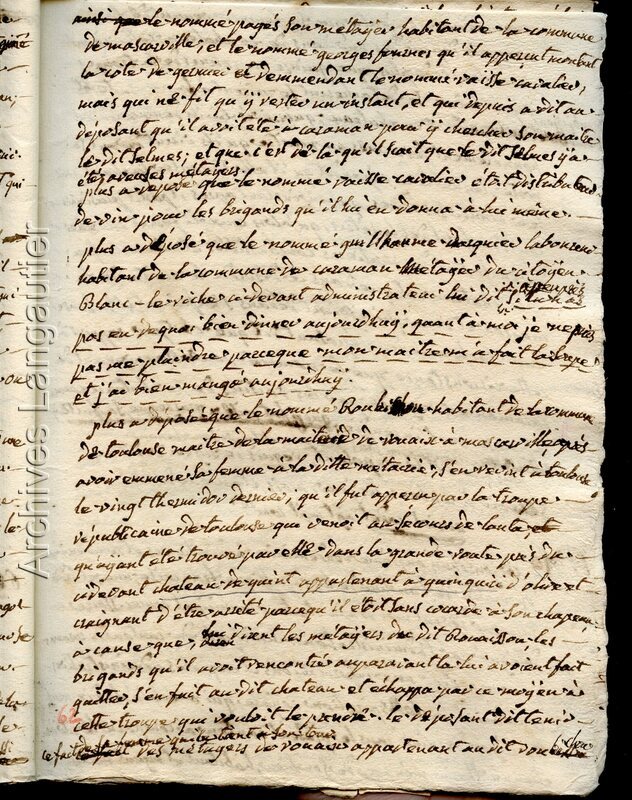 ainsi que le nommé pagés son métayer habitant de la commune
de mascarville, et le nommé georges fournes qu'il apperçut montant
la côte de et demmendant le nommé vaisse cavalier,
mais qui ne fit qu'ÿ rester un instant, et qui depuis a dit au
déposant qu'il avoit été à caraman pour ÿ chercher son maitre
le dit Selmes, et que c'est de là qu'il sçait que le dit Selmes ÿ a
été avec ses métayers
plus a déposé que le nommé vaisse cavalier étoit distributeur
de vin pour les brigands qu'il lui en donna à lui même.
plus a déposé que le nommé guilhaume laboureur
habitant de la commune de caraman métayer du citoyen
Blanc-le riche ci-devant administrateur lui dit Si tu n'as
pas eu de quoi bien dinner aujourdhuÿ, quant à moi je ne puis
pas me plaindre parceque mon maitre m'a fait la
et j'ai bien mangé aujourdhuÿ.
plus a déposé que le nommé habitant de la commune
de toulouse maitre de la de rouaix à mascarville après
avoir emmené sa femme à la ditte métairie, s'en revint à toulouse
le vingt thermidor dernier, qu'il fut apperçu par la troupe
républicaine de toulouse qui venoit au secours de lanta, et
qu'aÿant été trouvé par elle dans la grande route près du
cidevant chateau de quint appartenant à quinquiri d'olive et
craignant d'être arrêté parcequ'il étoit sans cocarde à son chapeau,
à cause que, lui dirent les métaÿers du dit les
brigands qu'il avoit rencontré auparavant la lui avoient fait
quitter, s'en fuit au dit chateau et échappa par ce moÿen à
cette troupe qui vouloit le prendre. le déposant dit tenir
ce fait
des métaÿers de rouaix appartenant au dit
62
Archives Langautier